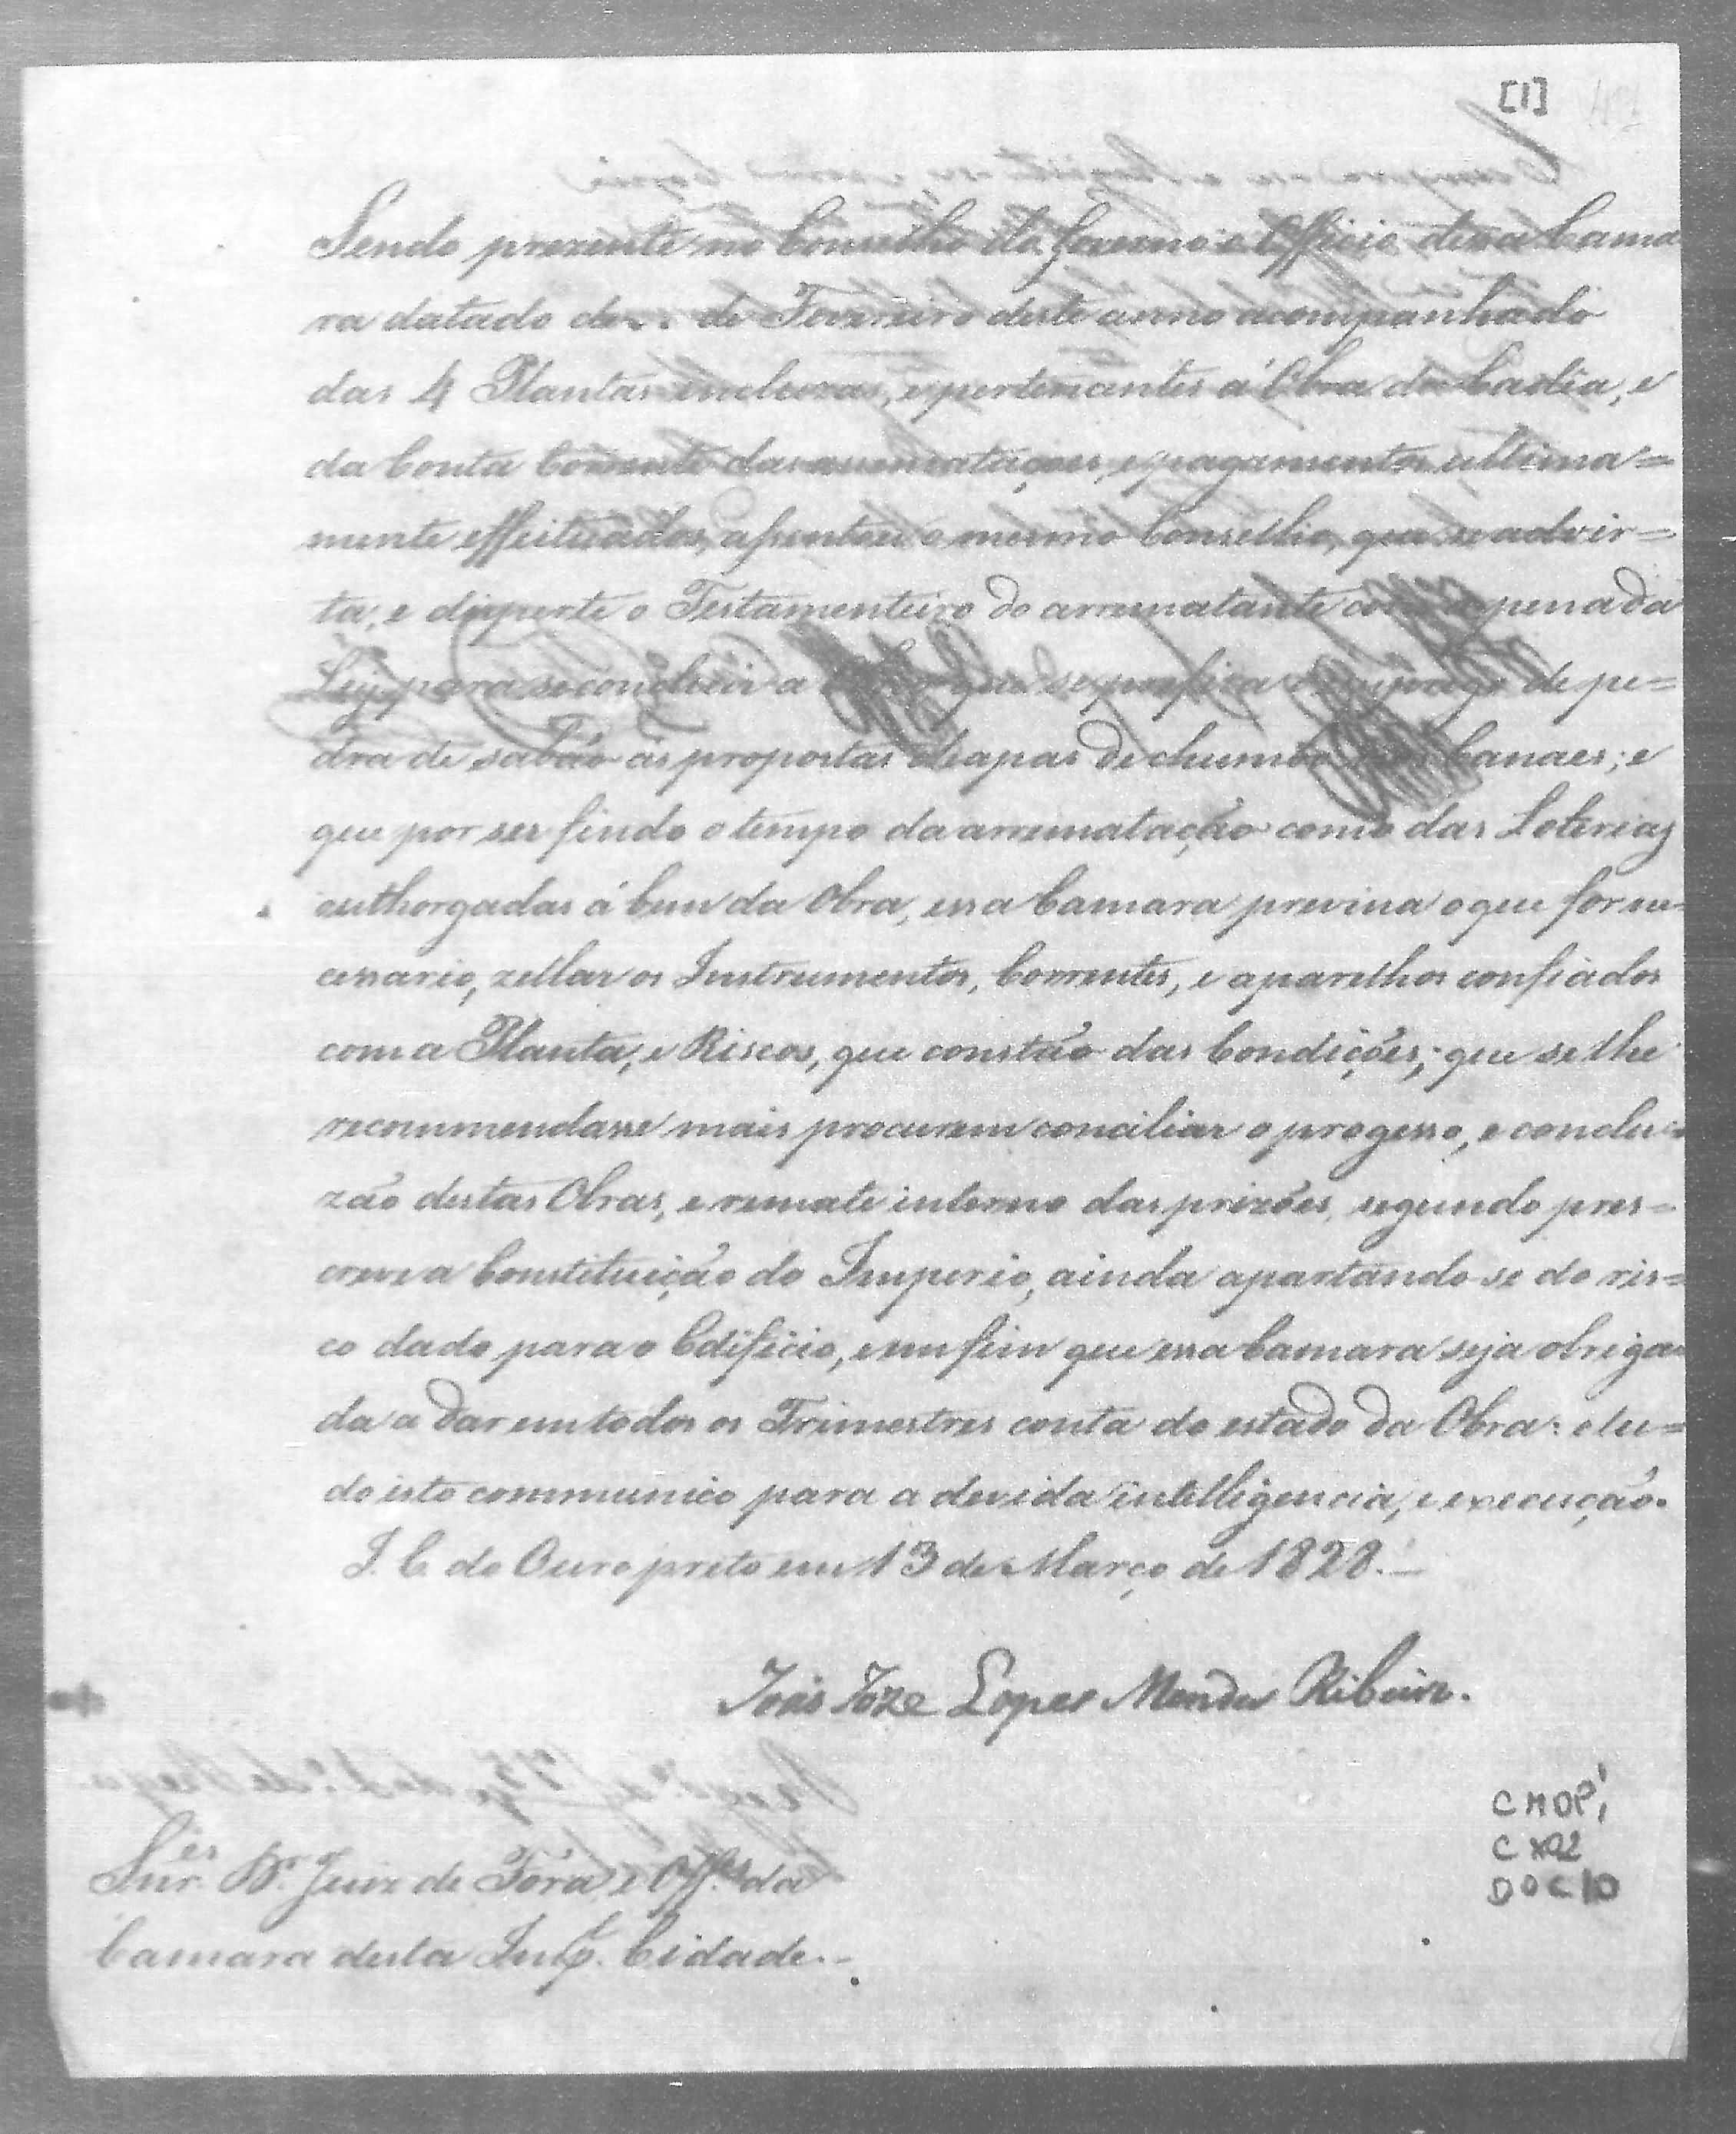 [1]
Sendo prezente no Conselho do Governo o Officio dessa Cama
ra datado de... de Fevereiro deste anno acompanhado
das 4 Plantas incluzas, e pertencentes á Obra da Cadêa, e
da Conta Corrente das arrematações, e pagamentos ultima=
mente effeituados, assentou o mesmo Conselho, que se advir=
ta, e disperte o Testamenteiro do arrematante com a pena da
Ley, para se concluir a que se prosiga de pe=
dra de sabão as propostas chapas de chumbo nos Canaes; e
que por ser findo o tempo da arrematação como das Loterias
authorgadas á bem da Obra, essa Camara previna o que for ne=
cessario, zellar os Instrumentos, Correntes, e aparelhos confiados
com a Planta, e Riscos, que constão das Condições; que se lhe
recommendasse mais procurem conciliar o progesso, e conclu=
zão destas Obras, e remate interno das prizões, segundo pres=
creve a Constituição do Imperio, ainda apartando-se do ris=
co dado para o Edificio, e emfim que essa Camara seja obriga=
da a dar em todos os Trimestres conta do estado da Obra: o tu=
do isto communico para a devida intelligencia, e execução.
I. C. do Ouro preto em 13 de Março de 1828.
João Joze Lopes Mendes Ribeiro.
Snr.es Dr. Juiz de Fóra e Off.es da
Camara desta Imp.l Cidade.
CMOP,
CX02
DOC 10